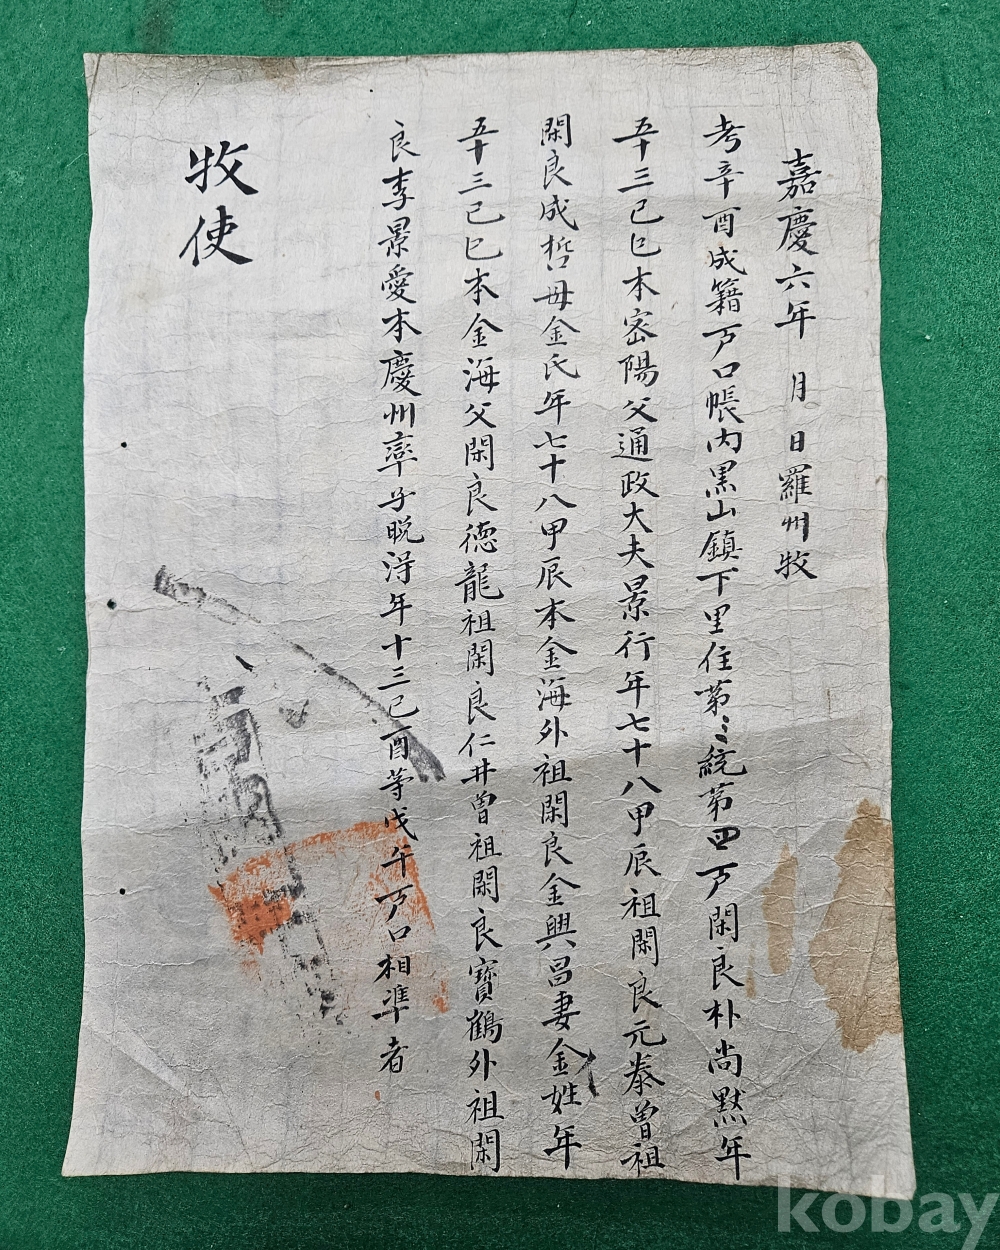 嘉慶六年 月 日羅州牧
考辛酉成籍戶口帳內黑山鎮下里住第三統第四戶閑良朴尚黙年
五十三己巳本密陽父通政大夫景行年七十八甲辰祖閑良元泰曾祖
閑良成哲母金氏年七十八甲辰本金海外祖閑良金興昌妻金姓年
五十三己巳本金海父閑良德龍祖閑良仁井曾祖閑良寶鶴外祖閑
良李景愛本慶州率子晩淂年十三己酉等戊午戶口相準者
牧使
kobay